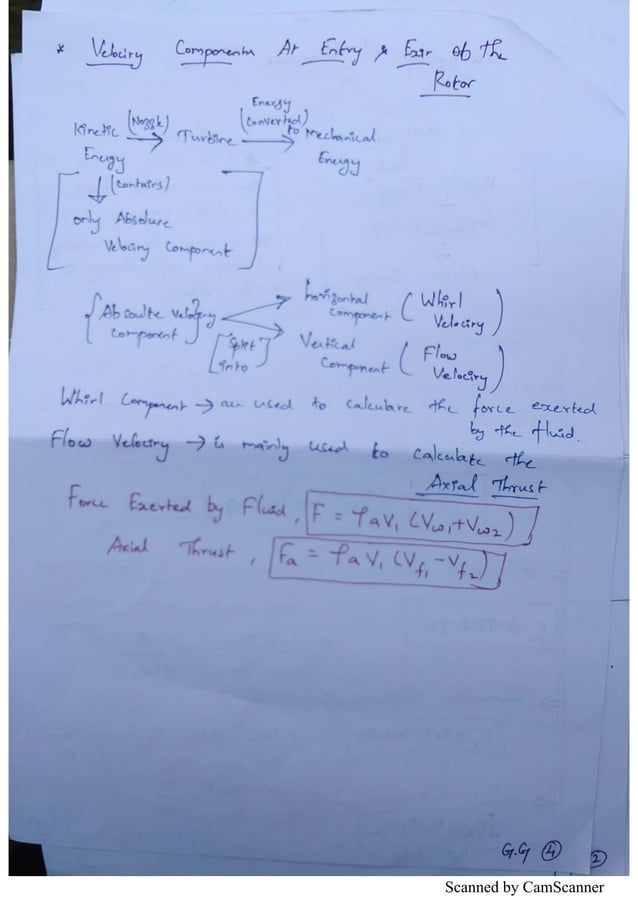 * Velocity Components At Entry & Exit of the
Rotor
Kinetic Energy (Nozzle) → Turbine Energy (Converted) to → Mechanical Energy
↓ (Contains)
only Absolute
Velocity Component
{Absoulte velocity component} [Split into]
horizontal component (Whirl Velocity)
Vertical Component (Flow Velocity)
Whirl Component → are used to calculate the force exerted
by the fluid.
Flow Velocity → is mainly used to calculate the
Axial Thrust
Force Exerted by Fluid, F = ρaV₁ (Vw₁+Vw₂)
Axial Thrust, Fa = ρaV₁ (Vf₁-Vf₂)
G.G ④ ②
Scanned by CamScanner